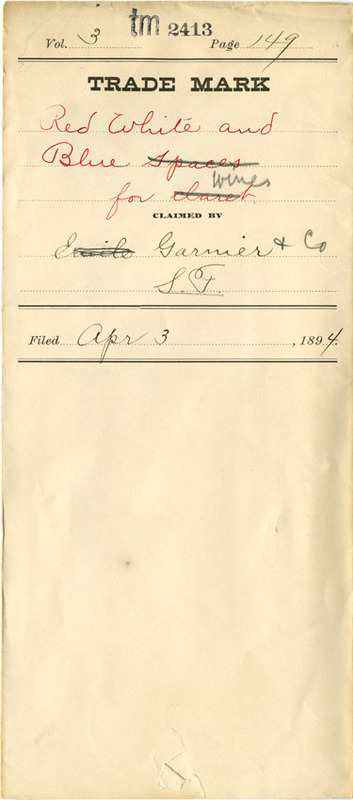 tm 2413
Vol. 3 Page 149
TRADE MARK
Red White and
Blue Spaces
wines
for claret
CLAIMED BY
Emile Garnier & Co
S.F.
Filed Apr 3, 1894.